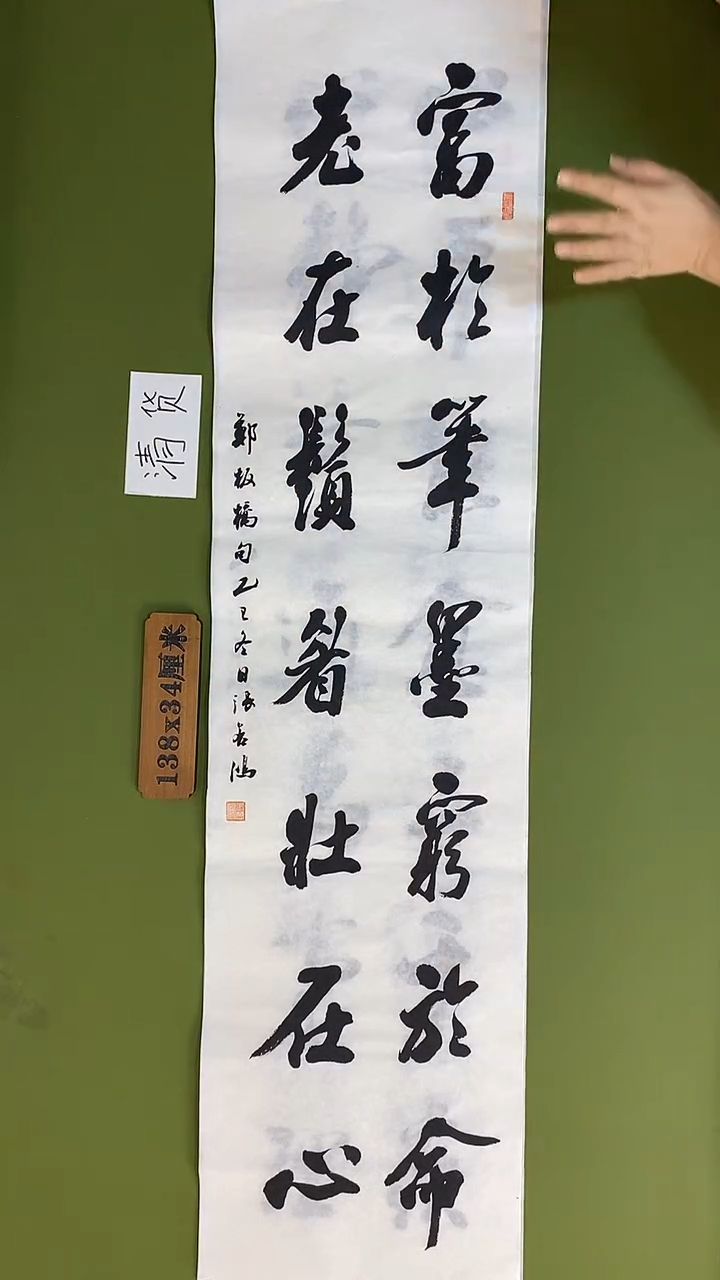 富於筆墨窮於命
老在鬚眉壯在心
鄭板橋句乙巳冬日張鴻
清货
138x34厘米